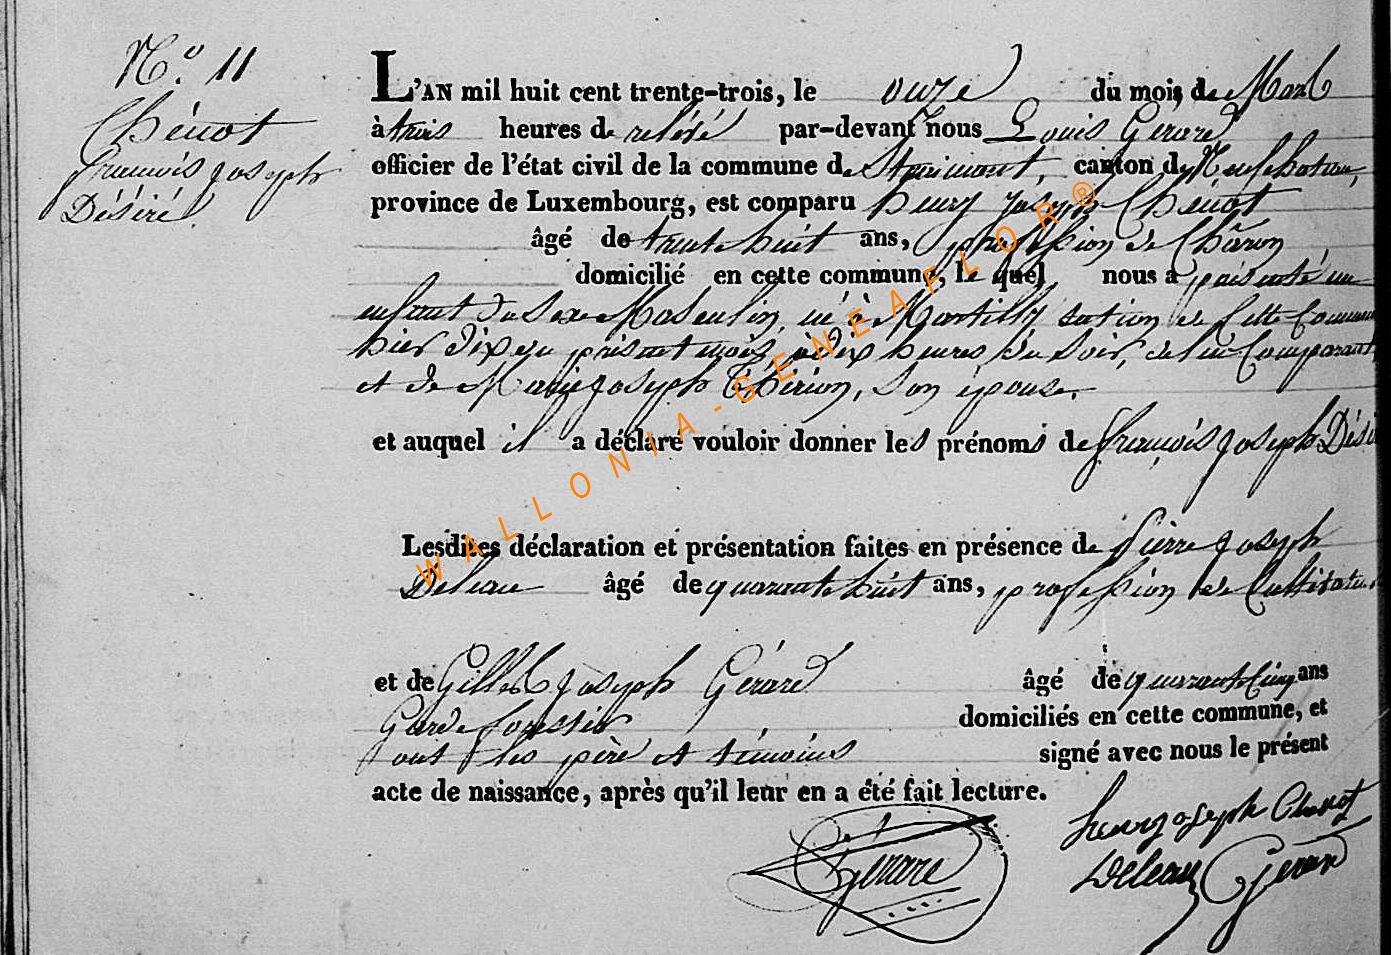 N.º 11
Chénot
françois joseph
Désiré
L'AN mil huit cent trente-trois, le onze du mois de Mars
à trois heures de relévé par-devant nous Louis Gerard
officier de l'état civil de la commune de Straimont, canton de Neufchateau,
province de Luxembourg, est comparu henry joseph Chénot
âgé de trente huit ans, profession de Charon
domicilié en cette commune, le quel nous a présenté un
enfant du sexe Masculin, né à Martilly section de Cette Commune
hier dix du présent mois, à dix heures du soir, de lui Comparant,
et de Marie joseph Thirion, son épouse.
et auquel il a déclaré vouloir donner les prénoms de françois joseph Dési
Lesdites déclaration et présentation faites en présence de Pierre joseph
Deleau âgé de quarante huit ans, profession de Cultivateur
et de Gilles joseph Gérard âgé de quarante Cinq ans
Garde forestier domiciliés en cette commune, et
ont les père et témoins signé avec nous le présent
acte de naissance, après qu'il leur en a été fait lecture.
henry joseph Chenot
Gérard Deleau Gérard
WALLONIA-GENEAFLOR®